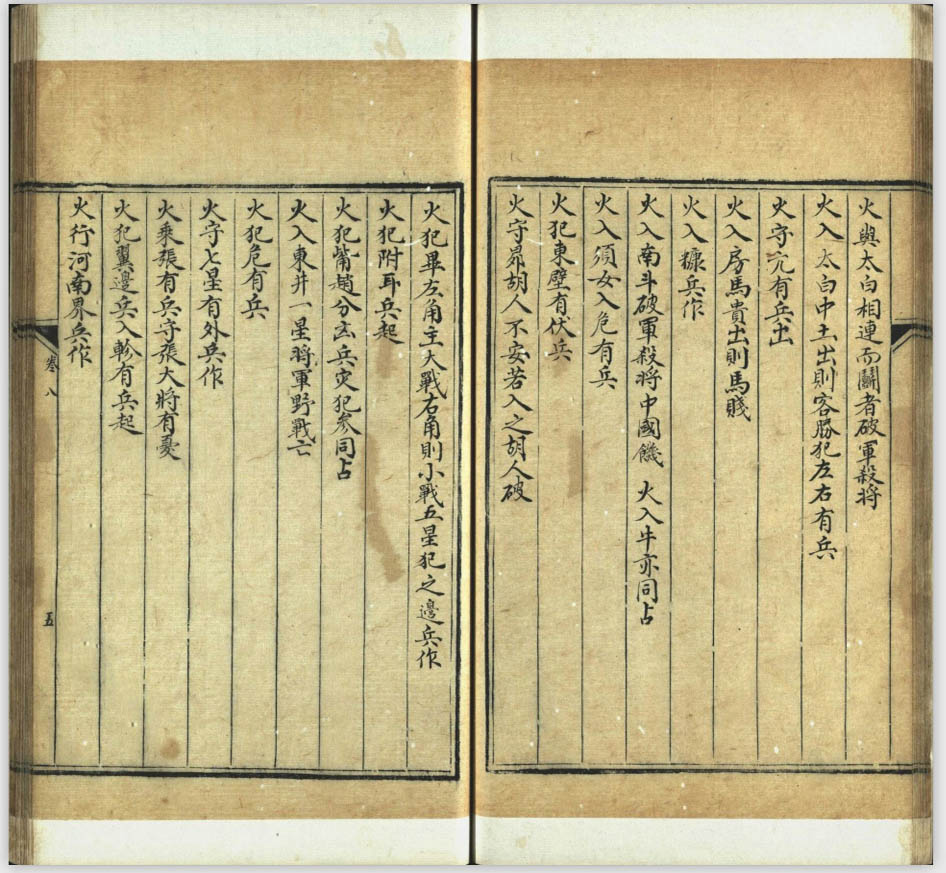 火與太白相連而鬪者破軍殺將
火入太白中土出則客勝犯左右有兵
火守亢有兵出
火入房馬貴出則馬賤
火入糠兵作
火入南斗破軍殺將中國饑　火入牛亦同占
火入須女入危有兵
火犯東壁有伏兵
火守昴胡人不安若入之胡人破
火犯畢左角主大戰右角則小戰五星犯之邊兵作
火犯附耳兵起
火犯觜趙分出兵灾犯參同占
火入東井一星將軍野戰亡
火犯危有兵
火守七星有外兵作
火乘張有兵守張大將有憂
火犯翼邊兵入軫有兵起
火行河南界兵作
卷八
五